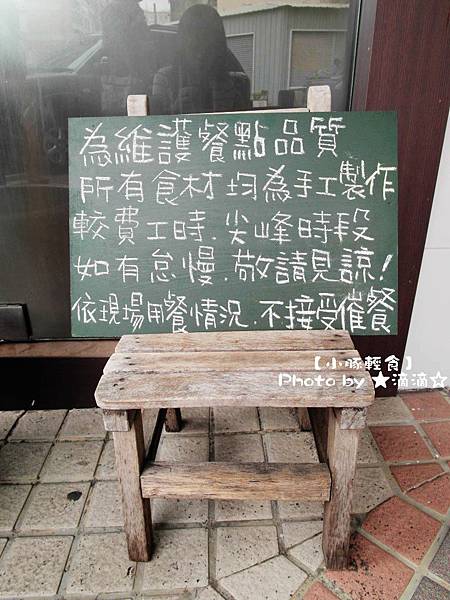 為維護餐點品質
所有食材均為手工製作
較費工時.尖峰時段
如有怠慢.敬請見諒!
依現場用餐情況.不接受催餐
【小豚輕食】
Photo by ★滴滴☆